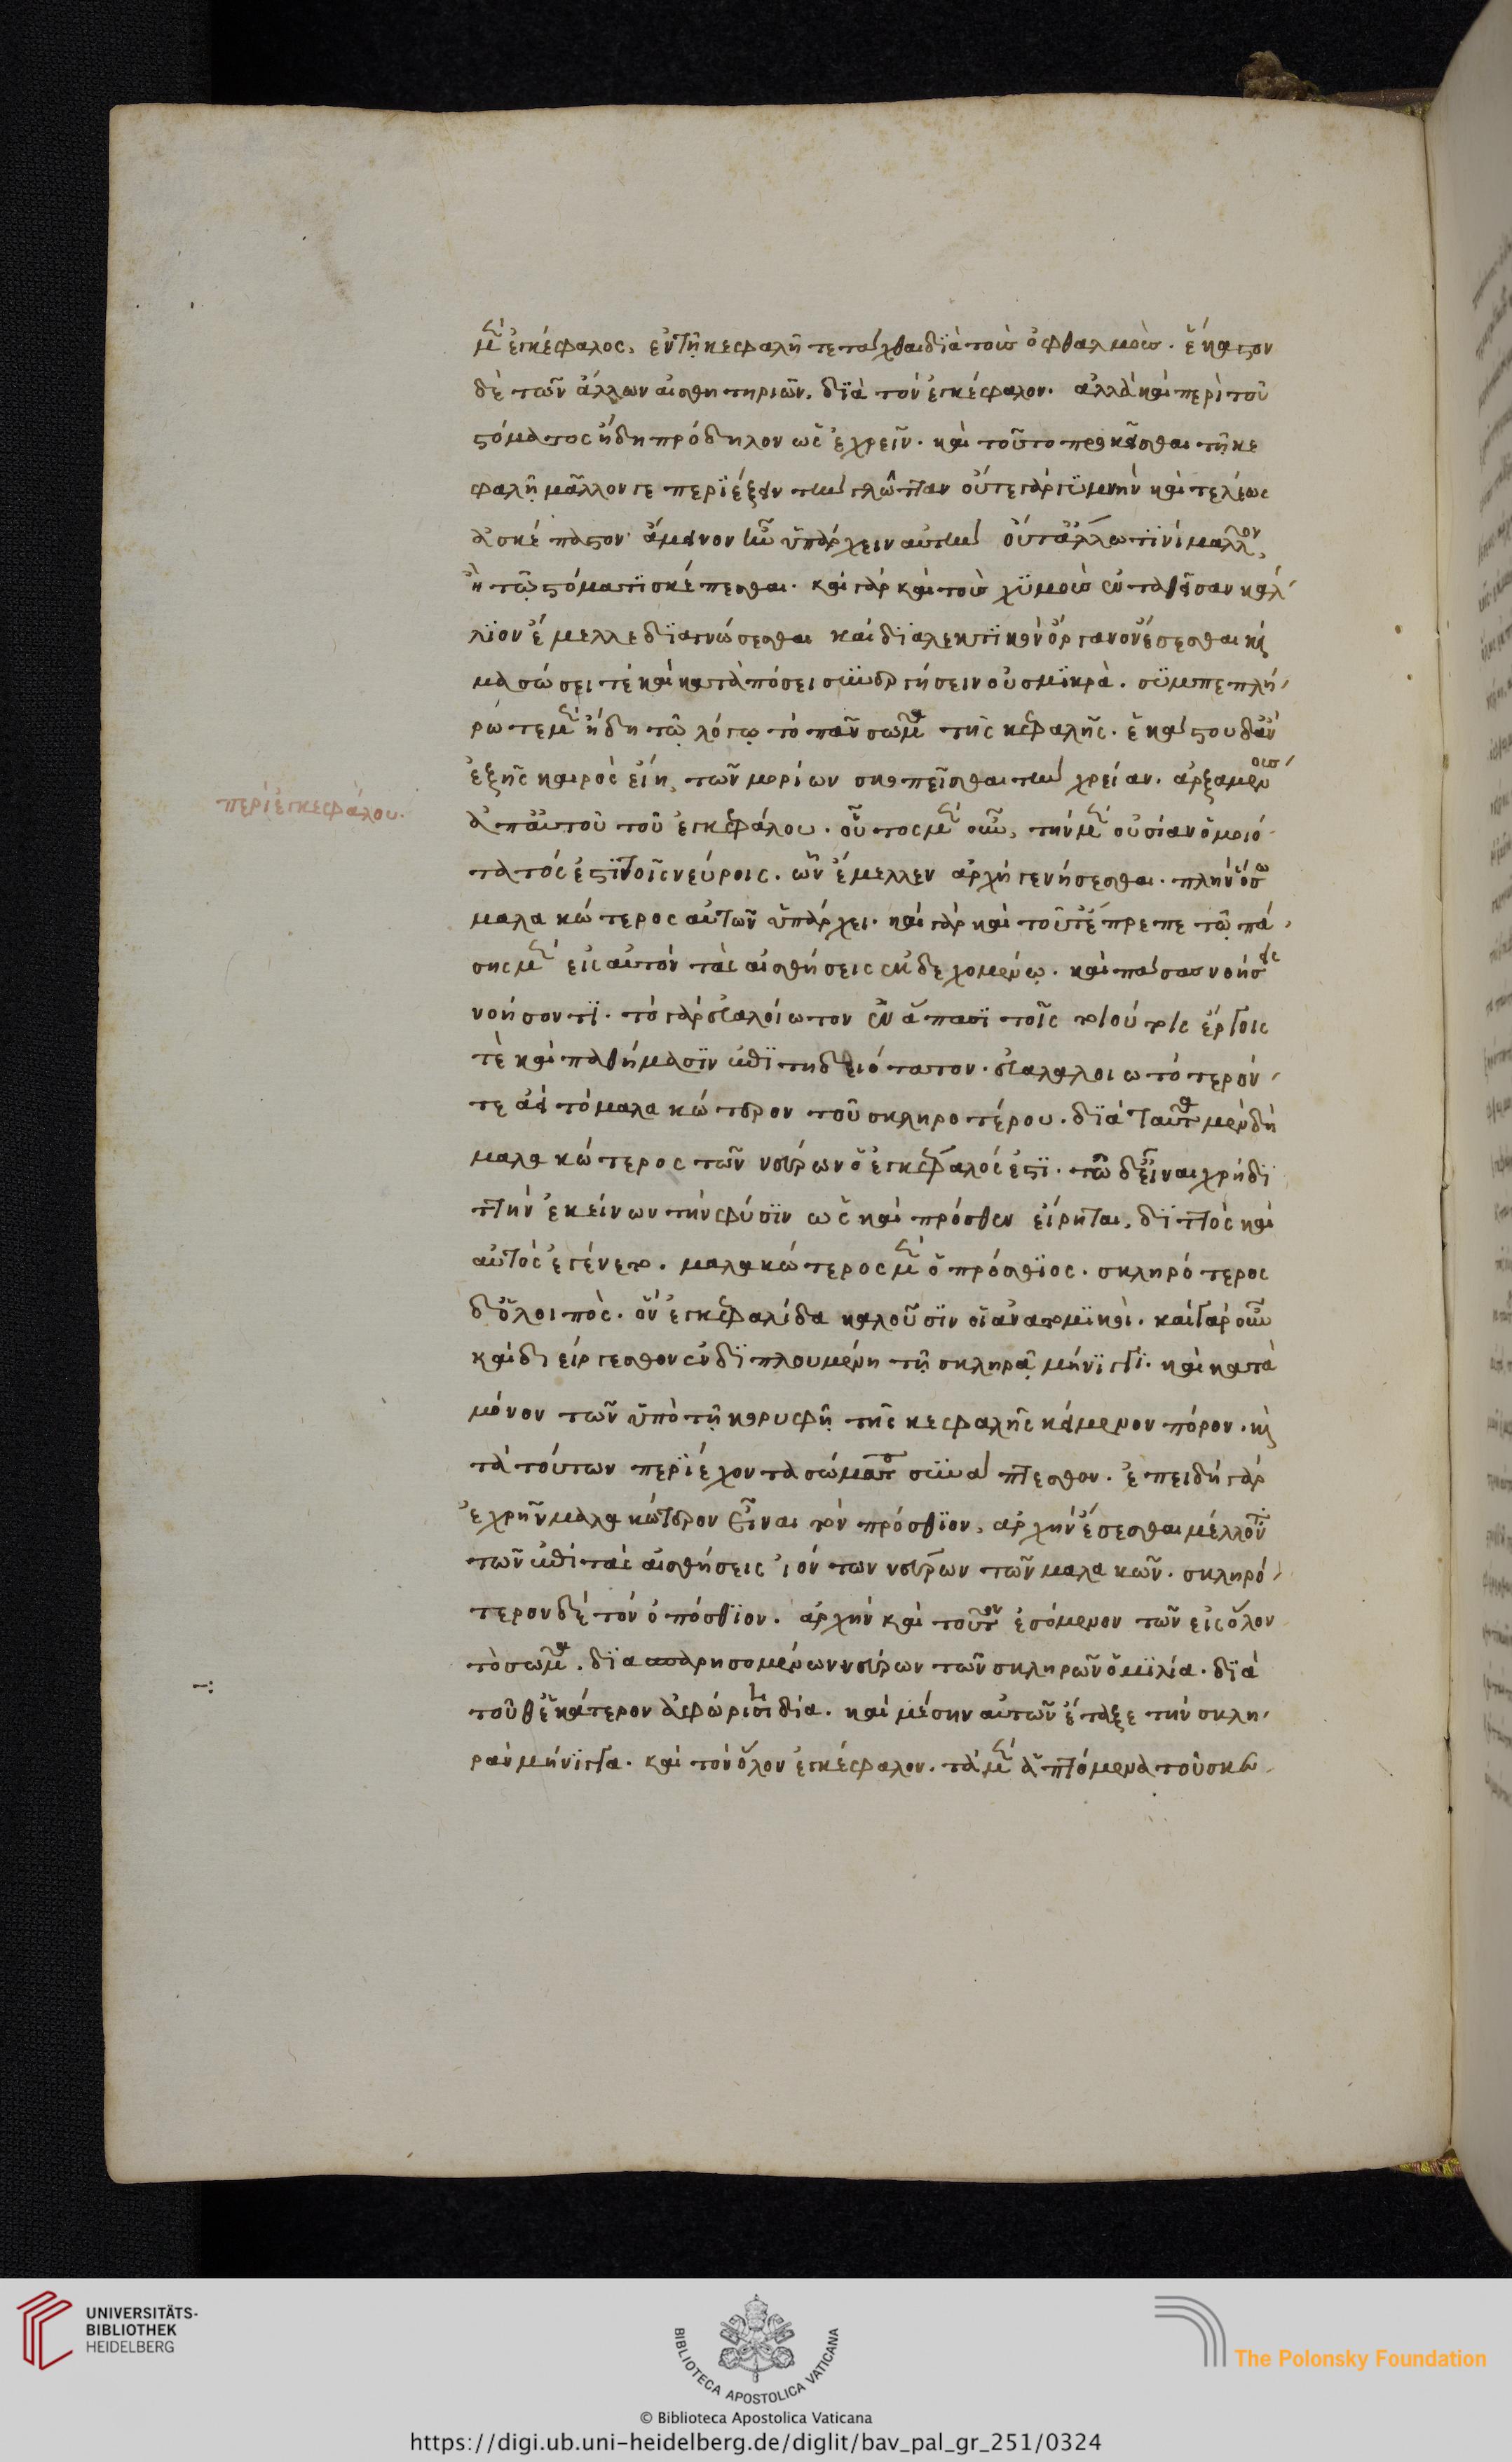 μὲν ἐγκέφαλος, ἐν τῇ κεφαλῇ τετάχθαι διὰ τοὺς ὀφθαλμούς. ἕκαστον
δὲ τῶν ἄλλων αἰσθητηρίων, διὰ τὸν ἐγκέφαλον. ἀλλὰ καὶ περὶ τοῦ
στόματος ἤδη πρόδηλον ὡς ἐχρῆν. καὶ τοῦτο προσκεῖσθαι τῇ κε
φαλῇ μᾶλλόν γε περιέξειν τὴν γλῶτταν οὔτε γὰρ γυμνὴν καὶ τελέως
ἀσκέπαστον ἄμεινον ἦν ὑπάρχειν αὐτὴν οὔτ' ἄλλω τινὶ μᾶλλον
ἢ τῷ στόματι σκέπεσθαι. καὶ γὰρ καὶ τοὺς χυμοὺς ἐνταῦθ' οὖσαν κάλ
λιον ἔμελλε διαγνώσεσθαι καὶ διαλεκτικὸν ὄργανον ἔσεσθαι καὶ
μασώσει τὲ καὶ καταπόσει συνεργήσειν οὐ σμικρά. συμπεπλή
ρωται μὲν ἤδη τῷ λόγῳ τὸ πᾶν σῶμα τῆς κεφαλῆς. ἑκάστου δ' ἂν
ἑξῆς καιρὸς εἴη, τῶν μορίων σκοπεῖσθαι τὴν χρείαν. ἀρξαμένοις
περὶ ἐγκεφάλου.
ἀπ' αὐτοῦ τοῦ ἐγκεφάλου. οὗτος μὲν οὖν, τὴν μὲν οὐσίαν ὁμοιό
τατός ἐστι τοῖς νεύροις. ὧν ἔμελλεν ἀρχὴ γενήσεσθαι. πλὴν ὅσω
μαλακώτερος αὐτῶν ὑπάρχει. καὶ γὰρ καὶ τοῦτ' ἔπρεπε τῷ πά
σης μὲν εἰς αὐτὸν τὰς αἰσθήσεις ἐνδεχομένῳ. καὶ πάσας νοήσεις
νοήσοντι. τὸ γὰρ εὐαλοίωτον ἐν ἅπασι τοῖς τοιούτοις ἔργοις
τὲ καὶ παθήμασιν ἐπιτηδειότατον. εὐαλλοιωτότερόν
τε ἀεὶ τὸ μαλακώτερον τοῦ σκληροτέρου. διὰ ταῦτα μὲν δὴ
μαλακώτερος τῶν νεύρων ὁ ἐγκέφαλός ἐστι. τῶ δ' εἶναι χρῆ δι
ττὴν ἐκείνων τὴν φύσιν ὡς καὶ πρόσθεν εἴρηται, διττὸς καὶ
αὐτὸς ἐγένετο. μαλακώτερος μὲν ὁ πρόσθιος. σκληρότερος
δ' ὁ λοιπός. ὃν ἐγκεφαλίδα καλοῦσιν οἱ ἀνατομικοί. καὶ γὰρ οὖν
καὶ διείργεσθον ἐν διπλουμένη τῇ σκληρᾷ μήνιγγι. καὶ κατὰ
μόνον τῶν ὑπὸ τῇ κορυφῇ τῆς κεφαλῆς κείμενον πόρον. καὶ
τὰ τούτων περιέχοντα σώματα συνάπτεσθον. ἐπειδὴ γὰρ
ἐχρῆν μαλακώτερον εἶναι τὸν πρόσθιον, ἀρχὴν ἔσεσθαι μέλλοντι
τῶν ἐπὶ τὰς αἰσθήσεις ἰόντων νεύρων τῶν μαλακῶν. σκληρό
τερον δὲ τὸν ὀπόσθιον. ἀρχὴν καὶ τοῦτον ἐσόμενον τῶν εἰς ὅλον
τὸ σῶμα. διασπαρησομένων νεύρων τῶν σκληρῶν ὁμιλία. διὰ
τοῦθ' ἑκάτερον ἀφώρισεν ἰδία. καὶ μέσην αὐτῶν ἔταξε τὴν σκλη
ρὰν μήνιγγα. καὶ τὸν ὅλον ἐγκέφαλον. τὰ μὲν ἁπτόμενα τοῦ σκε
UNIVERSITÄTS-
BIBLIOTHEK
HEIDELBERG
BIBLIOTECA APOSTOLICA VATICANA
The Polonsky Foundation
© Biblioteca Apostolica Vaticana
https://digi.ub.uni-heidelberg.de/diglit/bav_pal_gr_251/0324